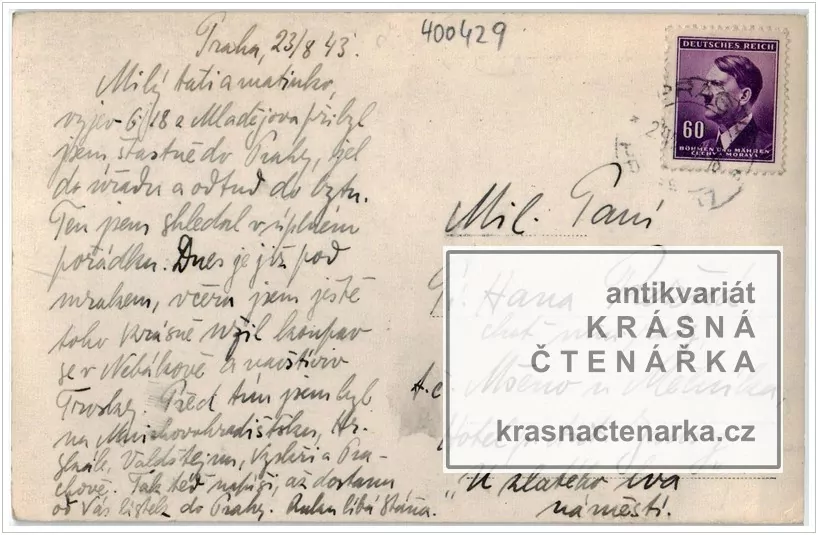 400429
Praha, 23/8 43.
Milý tati a matinko,
vyjev 6/18 z Mladějova přibyl
jsem šťastně do Prahy, jel
do úřadu a odtud do bytu.
Ten jsem shledal v úplném
pořádku. Dnes je již pod
mrakem, včera jsem ještě
toho krásně užil koupav
se v Nebákově a navštíviv
Trosky. Před tím jsem byl
na Mnichovohradištsku, Hr.
Skále, Valdštejnu, Vyskři a Pra-
chově. Tak též napíši, až dostanu
od Vás lístek do Prahy. Ruku líbá Stáňa.
DEUTSCHES REICH
60
BÖHMEN UND MÄHREN
ČECHY A MORAVA
PRAG
Mil. Paní
Hana
Mšeno u Mělníka,
"U zlatého lva
náměstí.
antikvariát
KRÁSNÁ
ČTENÁŘKA
krasnactenarka.cz